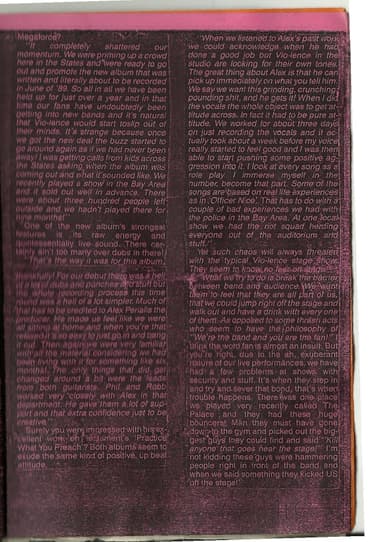 Megaforce?
"It completely shattered our
momentum. We were priming up a crowd
here in the States and were ready to go
out and promote the new album that was
written and literally about to be recorded
in June of '89. So all in all we have been
held up for just over a year and in that
time our fans have undoubtedly been
getting into new bands and it's natural
that Vio-lence would start to slip out of
their minds. It's strange because once
we got the new deal the buzz started to
go around again as if we had never been
away! I was getting calls from kids across
the States asking when the album was
coming out and what it sounded like. We
recently played a show in the Bay Area
and it sold out well in advance. There
were about three hundred people left
outside and we hadn't played there for
nine months!"
One of the new album's strongest
features is its raw energy and
quintessentially live sound. There cer-
tainly ain't too many over dubs in there!
"That's the way it was for this album,
definitely! For our debut there was a hell
of a lot of dubs and punched in stuff but
the whole recording process this time
round was a hell of a lot simpler. Much of
that has to be credited to Alex Perialis the
producer. He made us feel like we were
all sitting at home and when you're that
relaxed it is so easy to just go in and bang
it out. Then again we were very familiar
with all the material considering we had
been living with it for something like six
months! The only things that did get
changed around a bit were the leads
from both guitarists. Phil and Robb
worked very closely with Alex in that
department. He gave them a lot of sup-
port and that extra confidence just to be
creative."
Surely you were impressed with his ex-
cellent work on Testament's 'Practice
What You Preach'? Both albums seem to
exude the same kind of positive, up beat
attitude.
"When we listened to Alex's past work
we could acknowledge when he had
done a good job but Vio-lence in the
studio are looking for their own tones.
The great thing about Alex is that he can
pick up immediately on what you tell him.
We say we want this grinding, crunching,
pounding shit, and he gets it! When I did
the vocals the whole object was to get at-
titude across. In fact it had to be pure at-
titude. We worked for about three days
on just recording the vocals and it ac-
tually took about a week before my voice
really started to feel good and I was then
able to start pushing some positive ag-
gression into it. I look at every song as a
role play. I immerse myself in the
number, become that part. Some of the
songs are based on real life experiences
as in 'Officer Nice'. That has to do with a
couple of bad experiences we had with
the police in the Bay Area. At one local
show we had the riot squad herding
everyone out of the auditorium and
stuff."
Yet such chaos will always threaten
with the typical Vio-lence stage show.
They seem to know no fear on stage.
"What we try to do is break the barrier
between band and audience. We want
them to feel that they are all part of us,
that we could jump right off the stage and
walk out and have a drink with every one
of them. As opposed to some broken acts
who seem to have the philosophy of
"We're the band and you are the fans!". I
think the word fan is almost an insult. But
you're right, due to the ah, exuberant
nature of our live performances, we have
had a few problems at shows with
security and stuff. It's when they step in
and try and sever that bond, that's when
trouble happens. There was one place
we played very recently called The
Palace and they had these huge
bouncers! Man they must have gone
down to the gym and picked out the big-
gest guys they could find and said "Kill
anyone that goes near the stage!" I'm
not kidding these guys were hammering
people right in front of the band and
when we said something they kicked US
off the stage!